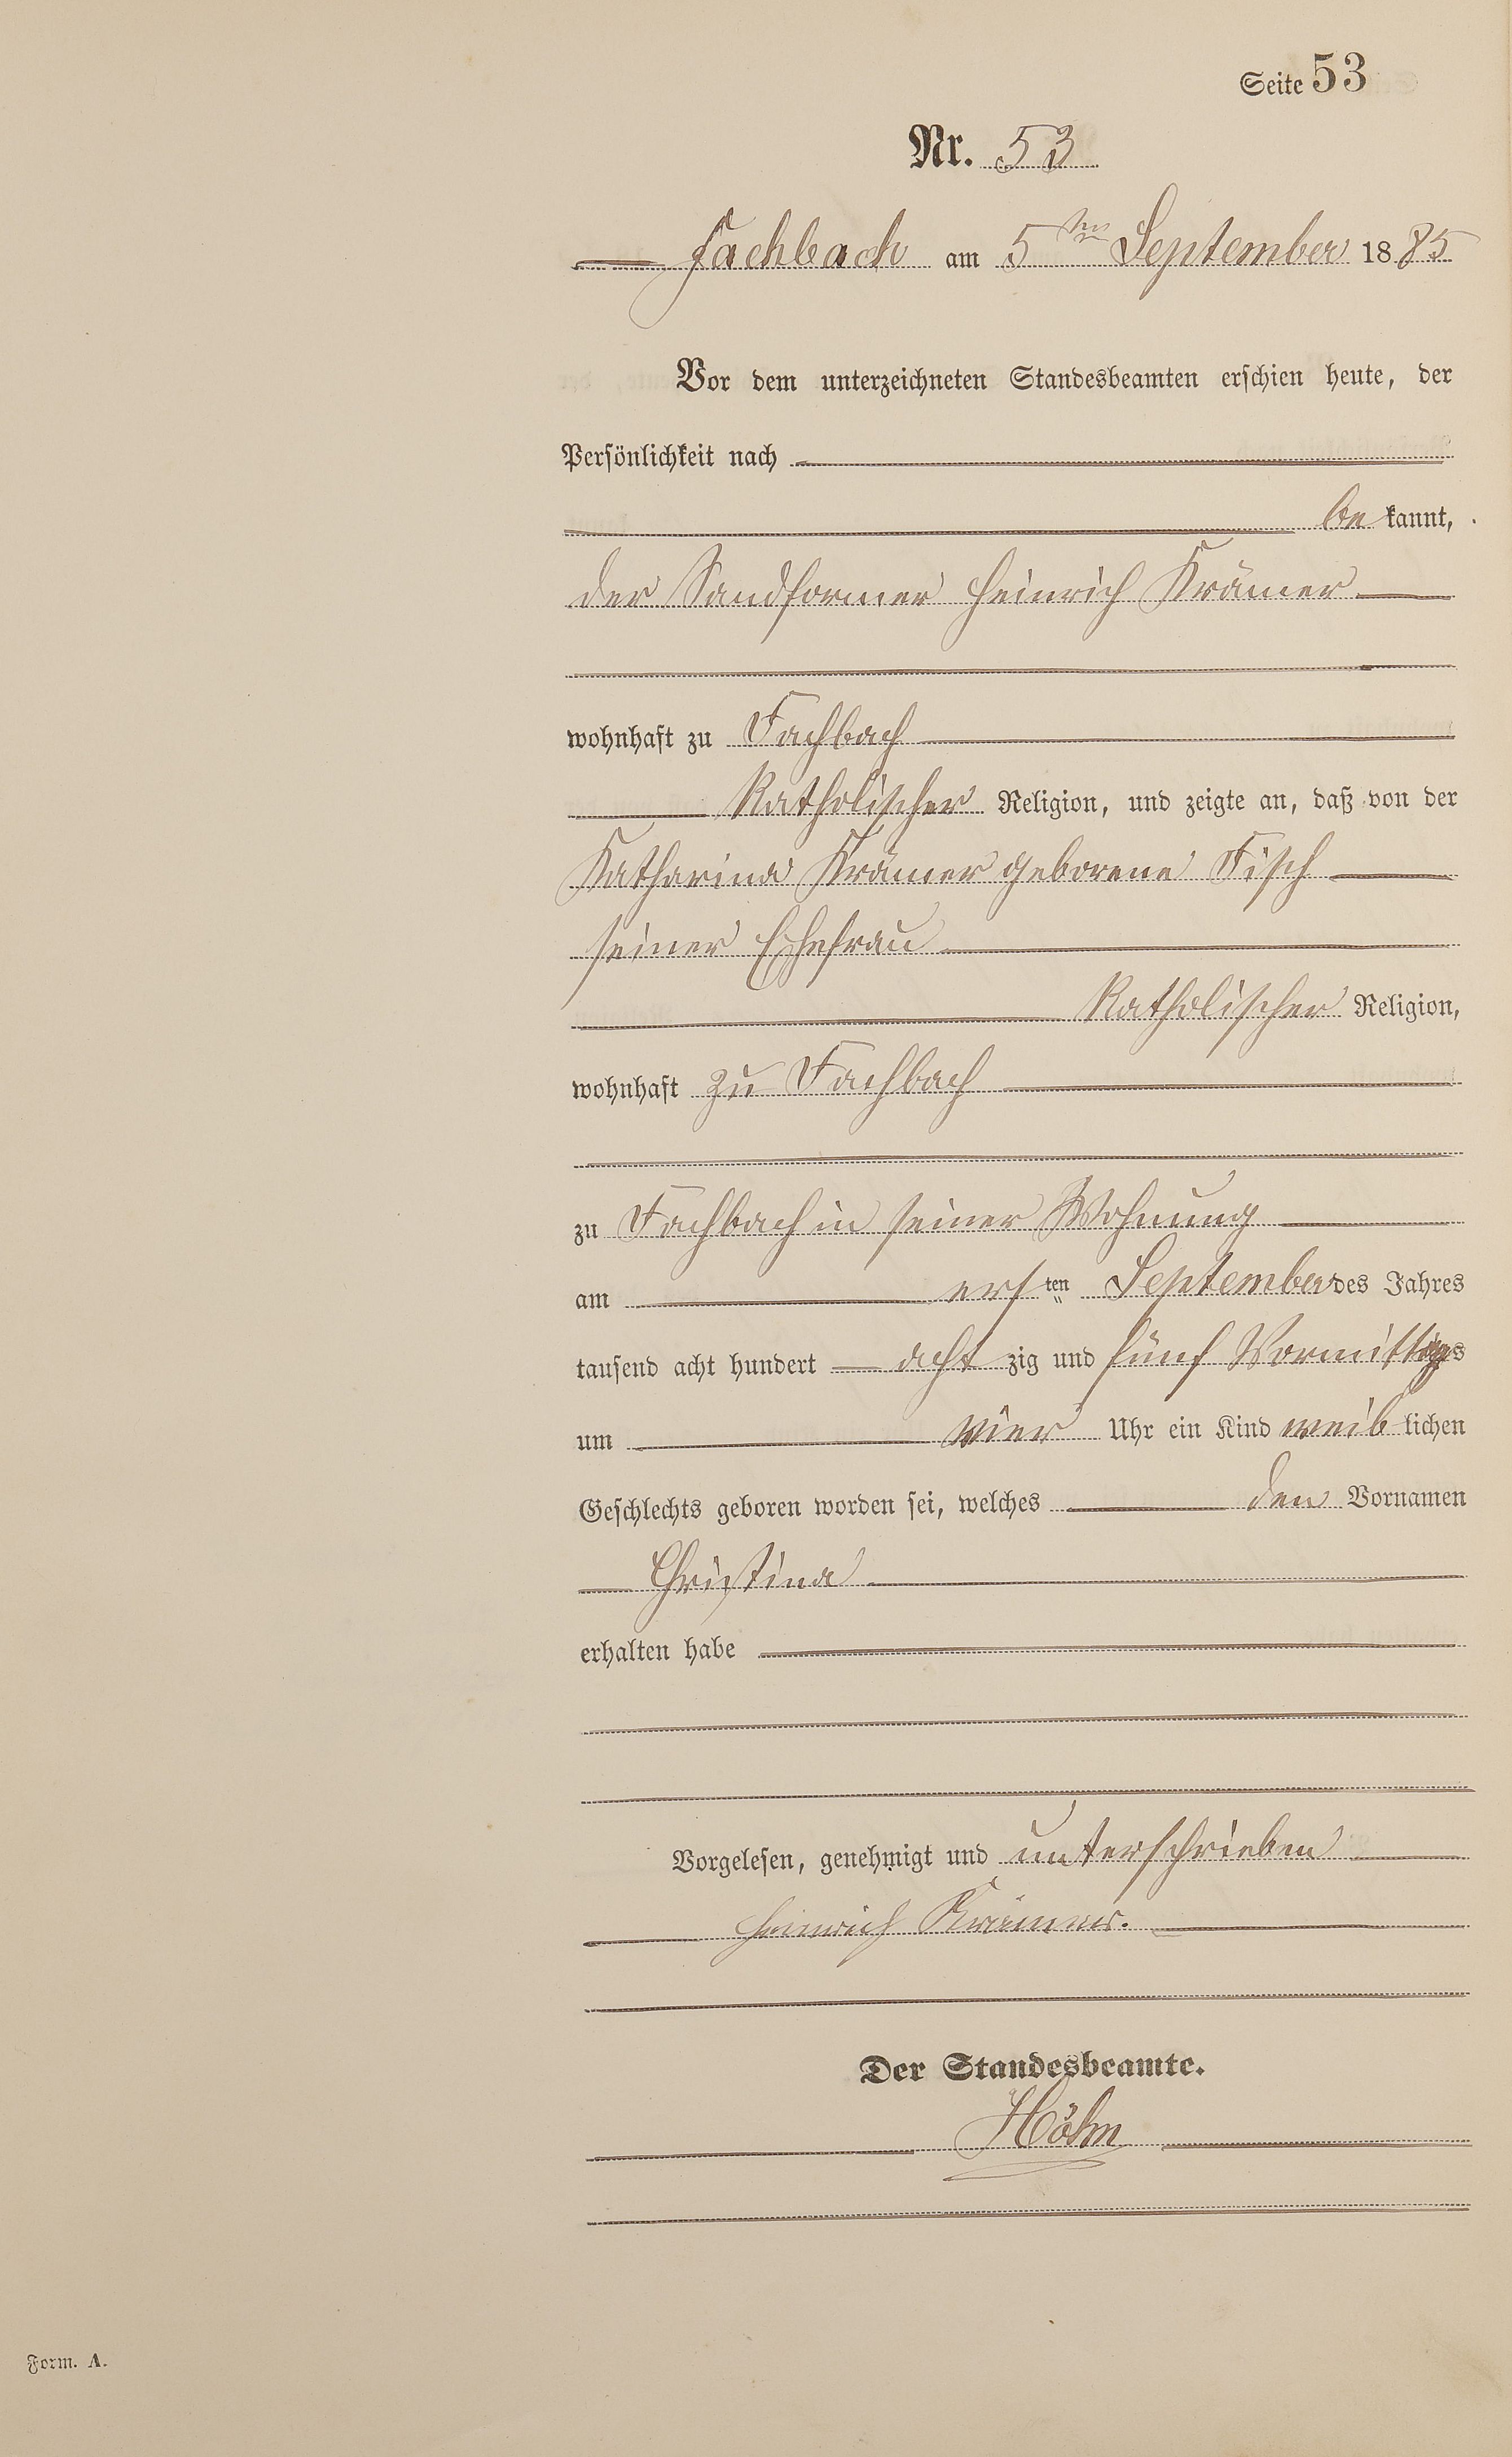 Seite 53
Nr. 53
Fachbach am 5ten September 1885
Vor dem unterzeichneten Standesbeamten erschien heute, der
Persönlichkeit nach
be kannt,
der Sandformer Heinrich Krämer
wohnhaft zu Fachbach
Katholischer Religion, und zeigte an, daß von der
Katharina Krämer geborene Fisch
seiner Ehefrau
Katholischer Religion,
wohnhaft zu Fachbach
zu Fachbach in seiner Wohnung
am ersten September des Jahres
tausend acht hundert acht zig und fünf Vormittags
um vier Uhr ein Kind weiblichen
Geschlechts geboren worden sei, welches den Vornamen
Christina
erhalten habe
Vorgelesen, genehmigt und unterschrieben
Heinrich Krämer.
Der Standesbeamte.
Höhn
Form. A.